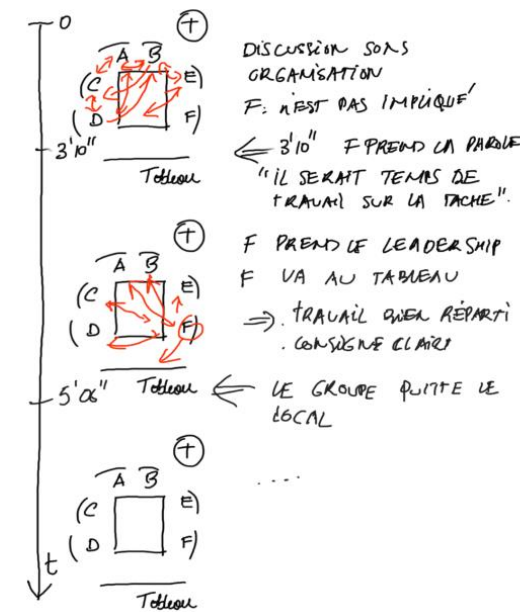 0
+
A B
(C E)
(D F)
DISCUSSION SANS
ORGANISATION
F: N'EST PAS IMPLIQUÉ
3'10"
Tableau
3'10" F PREND LA PAROLE
"IL SERAIT TEMPS DE
TRAVAIL SUR LA TACHE".
+
A B
(C E)
(D F)
F PREND LE LEADERSHIP
F VA AU TABLEAU
⇒ . TRAVAIL BIEN RÉPARTI
. CONSIGNE CLAIRE
5'06"
Tableau
LE GROUPE QUITTE LE
LOCAL
+
A B
(C E)
(D F)
....
t
Tableau